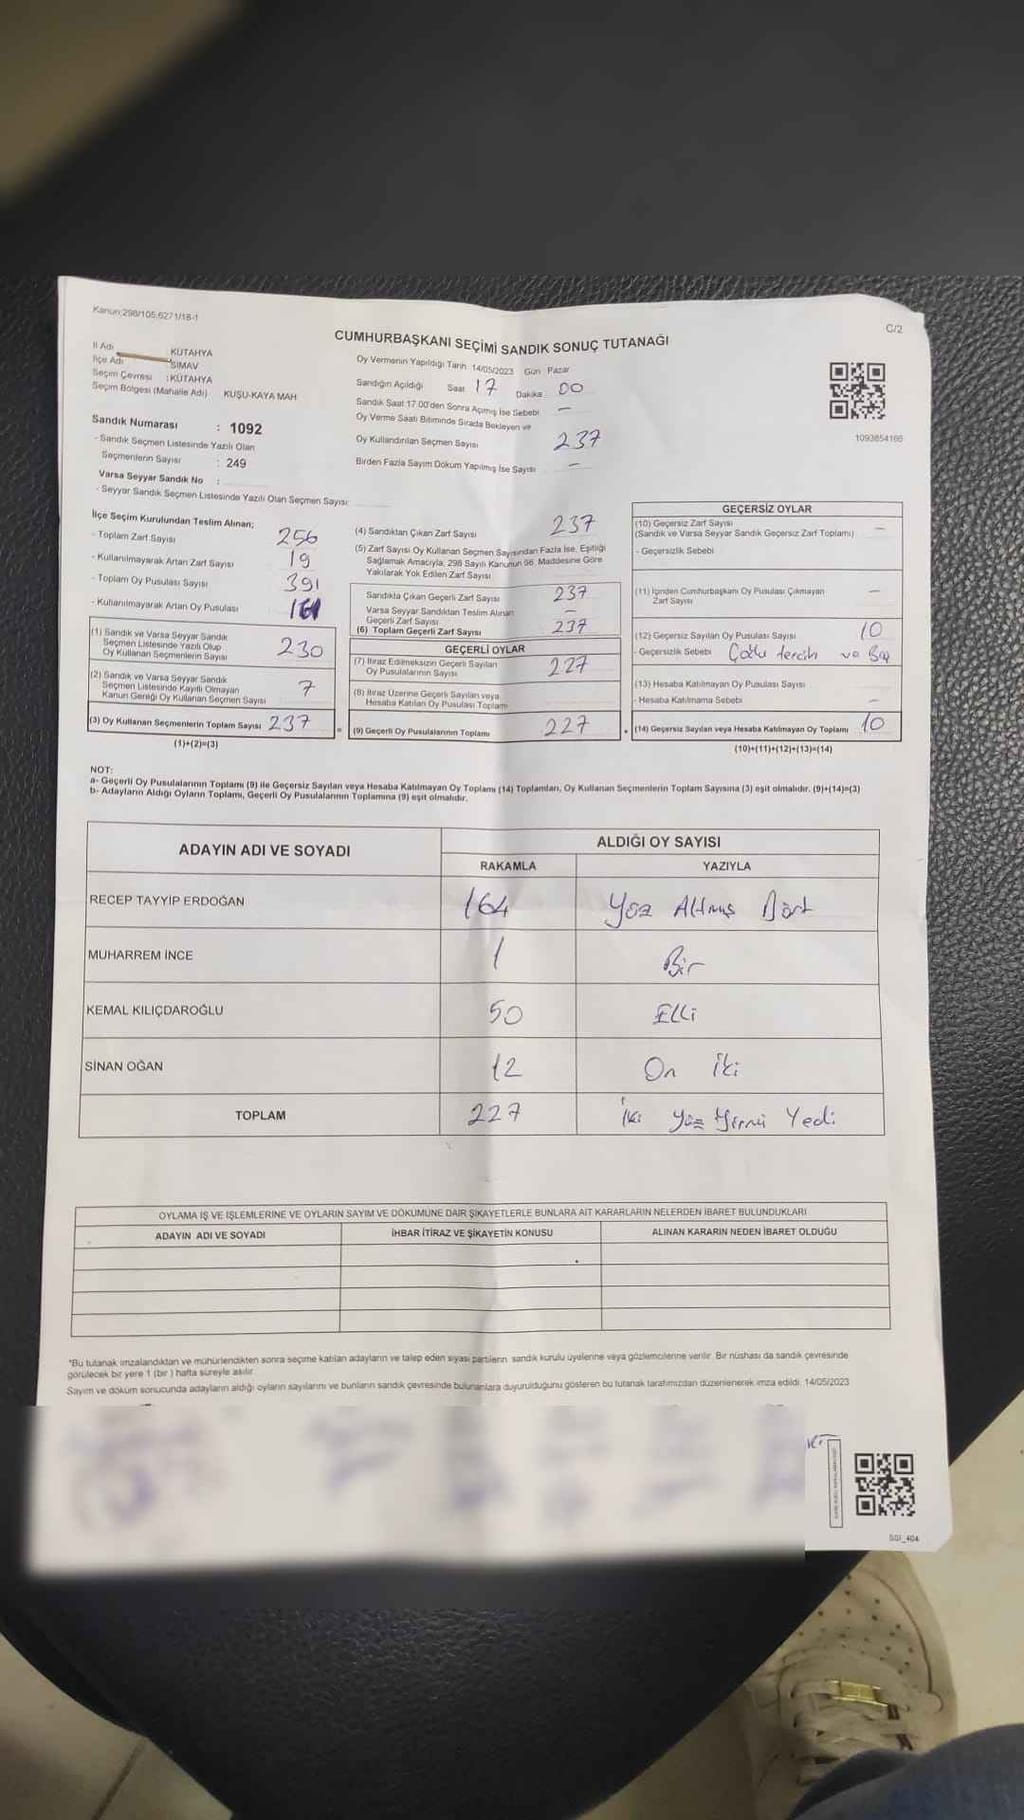 Kanun:298/105,6271/18-1
C/2
CUMHURBAŞKANI SEÇİMİ SANDIK SONUÇ TUTANAĞI
İl Adı KÜTAHYA
İlçe Adı SİMAV
Seçim Çevresi :KÜTAHYA
Seçim Bölgesi (Mahalle Adı) KUŞU-KAYA MAH
Sandık Numarası : 1092
- Sandık Seçmen Listesinde Yazılı Olan
Seçmenlerin Sayısı : 249
Varsa Seyyar Sandık No :
- Seyyar Sandık Seçmen Listesinde Yazılı Olan Seçmen Sayısı:
Oy Vermenin Yapıldığı Tarih 14/05/2023 Gün Pazar
Sandığın Açıldığı Saat 17 Dakika 00
Sandık Saat 17.00'den Sonra Açılmış İse Sebebi –
Oy Verme Saati Bitiminde Sırada Bekleyen ve
Oy Kullandırılan Seçmen Sayısı 237
Birden Fazla Sayım Döküm Yapılmış İse Sayısı –
1093854166
İlçe Seçim Kurulundan Teslim Alınan;
- Toplam Zarf Sayısı 256
- Kullanılmayarak Artan Zarf Sayısı 19
- Toplam Oy Pusulası Sayısı 391
- Kullanılmayarak Artan Oy Pusulası
(1) Sandık ve Varsa Seyyar Sandık
Seçmen Listesinde Yazılı Olup
Oy Kullanan Seçmenlerin Sayısı 230
(2) Sandık ve Varsa Seyyar Sandık
Seçmen Listesinde Kayıtlı Olmayan
Kanun Gereği Oy Kullanan Seçmen Sayısı 7
(3) Oy Kullanan Seçmenlerin Toplam Sayısı 237
(1)+(2)=(3)
(4) Sandıktan Çıkan Zarf Sayısı 237
(5) Zarf Sayısı Oy Kullanan Seçmen Sayısından Fazla İse, Eşitliği
Sağlamak Amacıyla, 298 Sayılı Kanunun 98. Maddesine Göre
Yakılarak Yok Edilen Zarf Sayısı
Sandıkta Çıkan Geçerli Zarf Sayısı 237
Varsa Seyyar Sandıktan Teslim Alınan
Geçerli Zarf Sayısı –
(6) Toplam Geçerli Zarf Sayısı 237
GEÇERLİ OYLAR
(7) İtiraz Edilmeksizin Geçerli Sayılan
Oy Pusulalarının Sayısı 227
(8) İtiraz Üzerine Geçerli Sayılan veya
Hesaba Katılan Oy Pusulası Toplamı
= (9) Geçerli Oy Pusulalarının Toplamı 227
GEÇERSİZ OYLAR
(10) Geçersiz Zarf Sayısı –
(Sandık ve Varsa Seyyar Sandık Geçersiz Zarf Toplamı)
- Geçersizlik Sebebi
(11) İçinden Cumhurbaşkanı Oy Pusulası Çıkmayan
Zarf Sayısı –
(12) Geçersiz Sayılan Oy Pusulası Sayısı 10
- Geçersizlik Sebebi Çoklu tercih ve Boş
(13) Hesaba Katılmayan Oy Pusulası Sayısı
- Hesaba Katılmama Sebebi –
(14) Geçersiz Sayılan veya Hesaba Katılmayan Oy Toplamı 10
(10)+(11)+(12)+(13)=(14)
NOT:
a- Geçerli Oy Pusulalarının Toplamı (9) ile Geçersiz Sayılan veya Hesaba Katılmayan Oy Toplamı (14) Toplamları, Oy Kullanan Seçmenlerin Toplam Sayısına (3) eşit olmalıdır. (9)+(14)=(3)
b- Adayların Aldığı Oyların Toplamı, Geçerli Oy Pusulalarının Toplamına (9) eşit olmalıdır.
ADAYIN ADI VE SOYADI
ALDIĞI OY SAYISI
RAKAMLA YAZIYLA
RECEP TAYYİP ERDOĞAN 164 Yüz Altmış Dört
MUHARREM İNCE 1 Bir
KEMAL KILIÇDAROĞLU 50 Elli
SİNAN OĞAN 12 On İki
TOPLAM 227 İki Yüz Yirmi Yedi
OYLAMA İŞ VE İŞLEMLERİNE VE OYLARIN SAYIM VE DÖKÜMÜNE DAİR ŞİKAYETLERLE BUNLARA AİT KARARLARIN NELERDEN İBARET BULUNDUKLARI
ADAYIN ADI VE SOYADI İHBAR İTİRAZ VE ŞİKAYETİN KONUSU ALINAN KARARIN NEDEN İBARET OLDUĞU
*Bu tutanak imzalandıktan ve mühürlendikten sonra seçime katılan adayların ve talep eden siyasi partilerin sandık kurulu üyelerine veya gözlemcilerine verilir. Bir nüshası da sandık çevresinde
görülecek bir yere 1 (bir) hafta süreyle asılır.
Sayım ve döküm sonucunda adayların aldığı oyların sayılarını ve bunların sandık çevresinde bulunanlara duyurulduğunu gösteren bu tutanak tarafımızdan düzenlenerek imza edildi. 14/05/2023